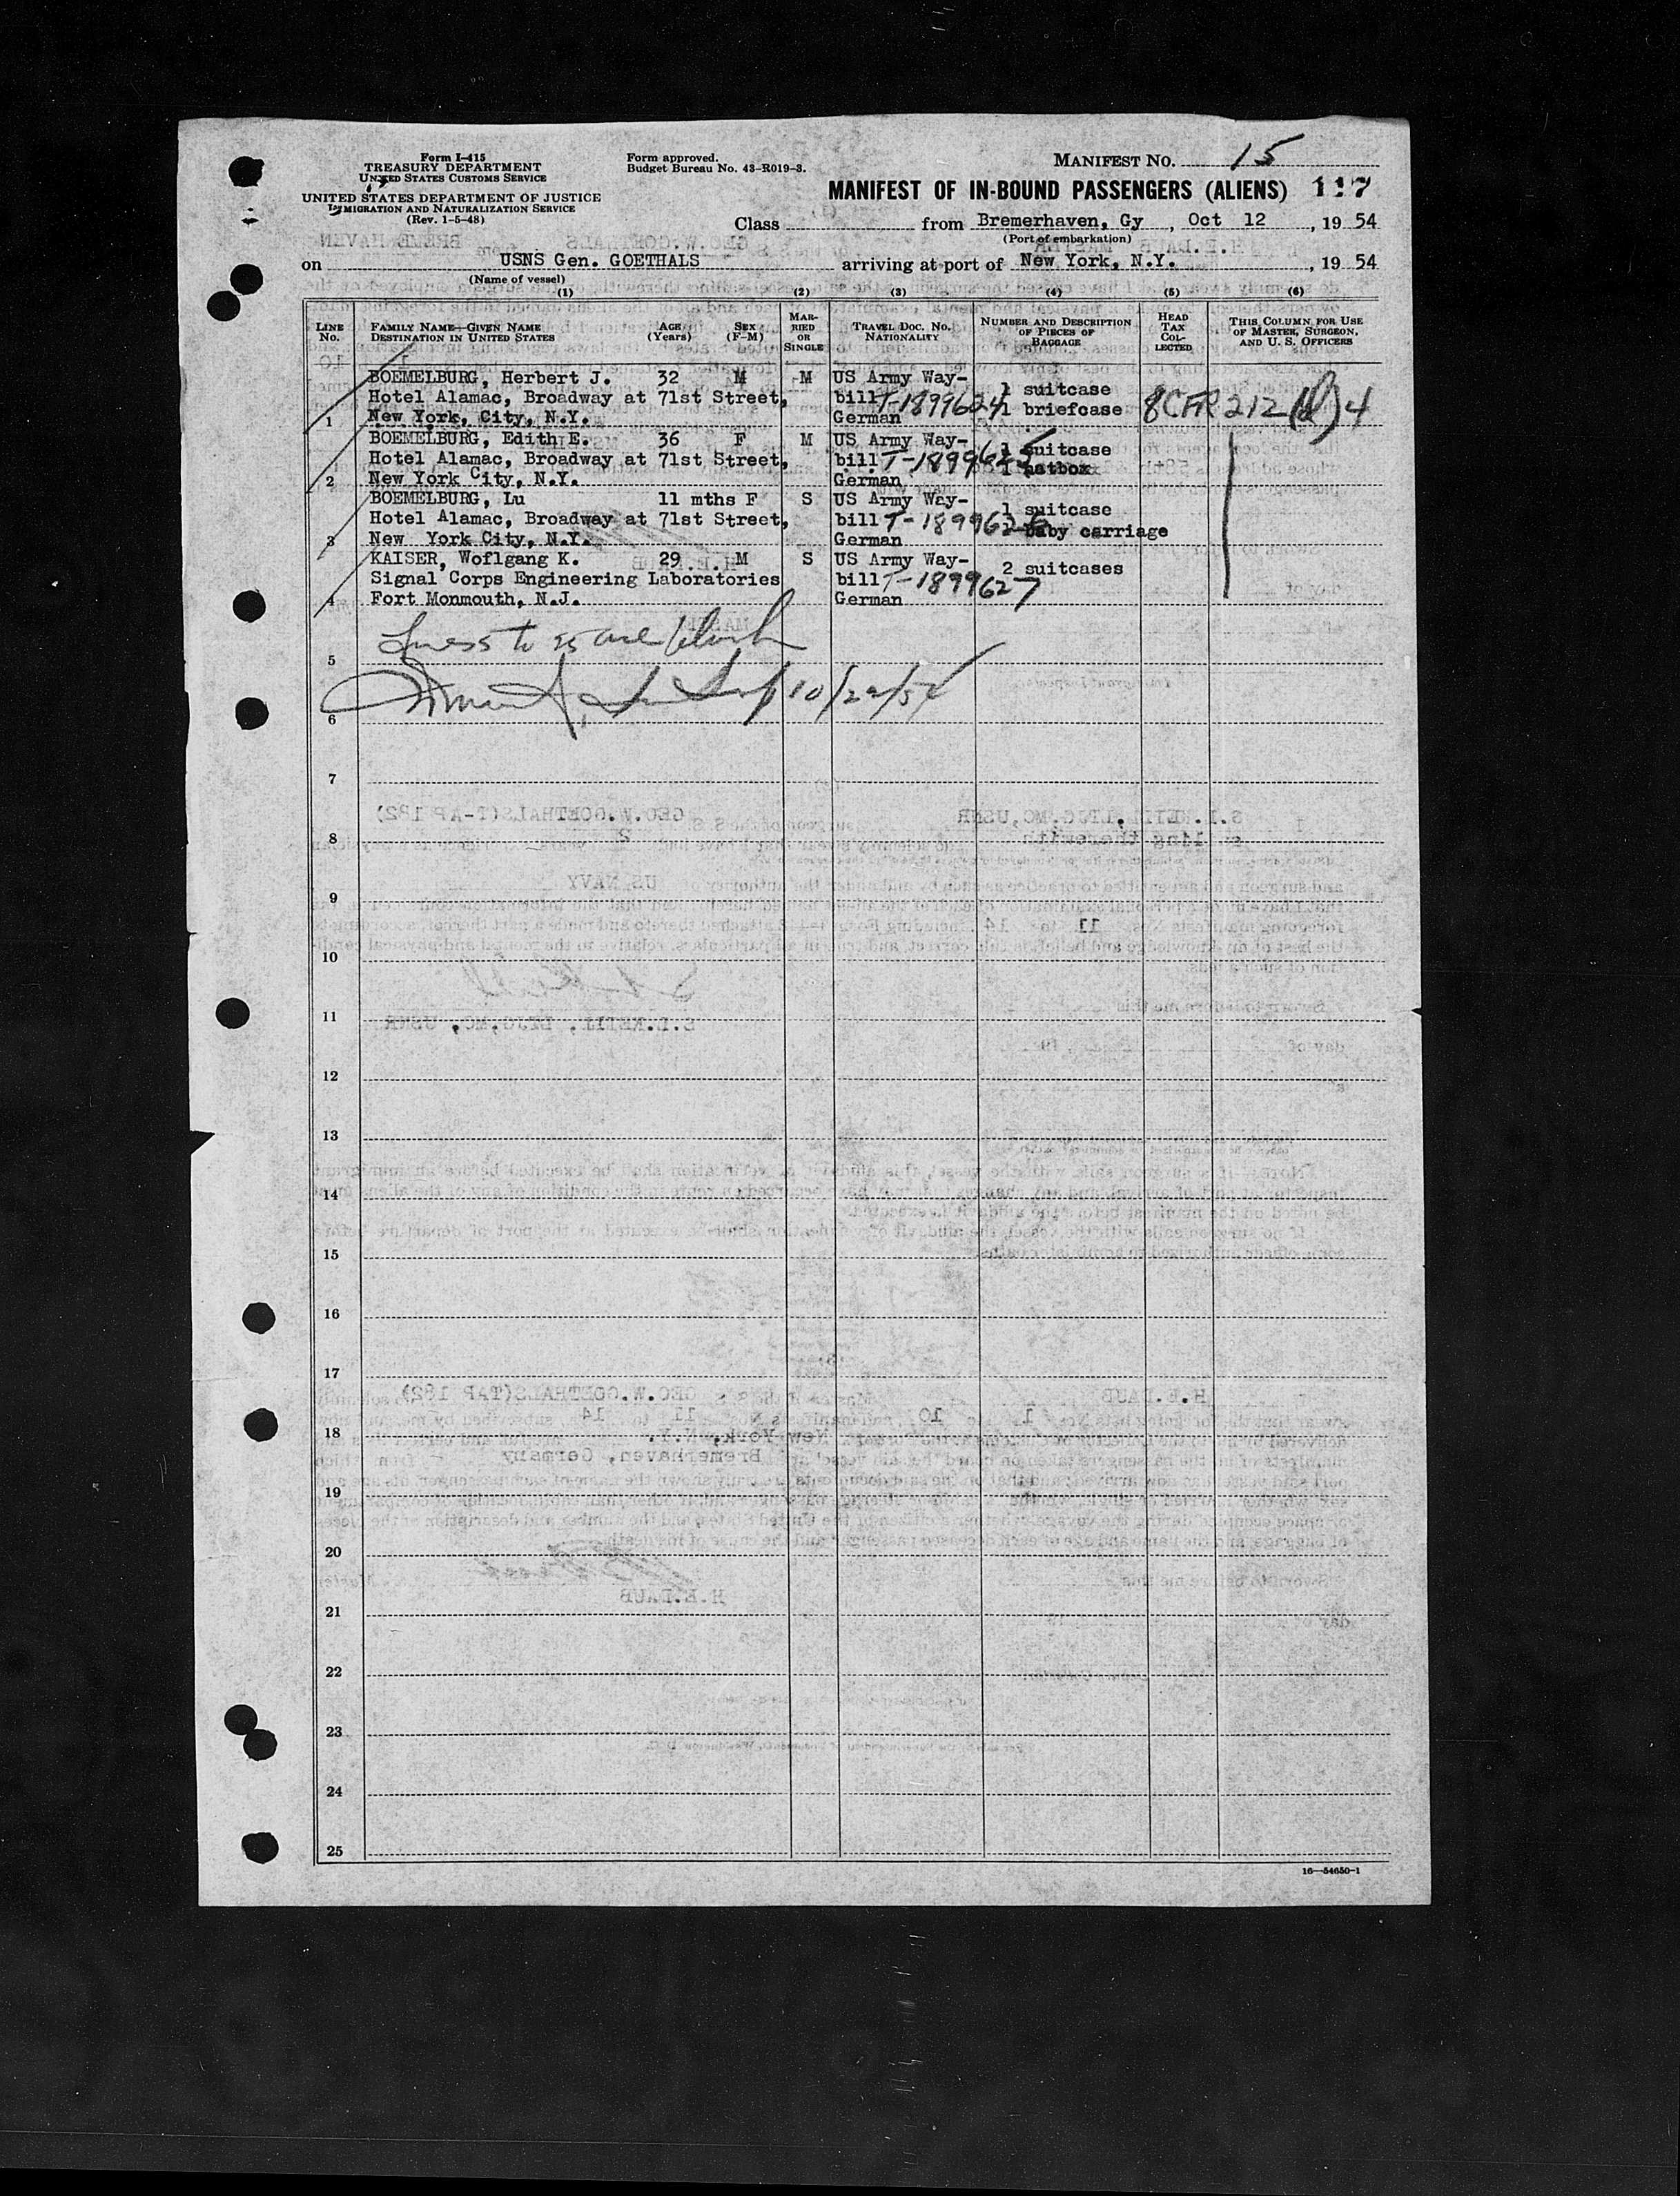 Form I-415
TREASURY DEPARTMENT
UNITED STATES CUSTOMS SERVICE
UNITED STATES DEPARTMENT OF JUSTICE
IMMIGRATION AND NATURALIZATION SERVICE
(Rev. 1-5-48)
Form approved.
Budget Bureau No. 43-R019-3.
MANIFEST No. 15
MANIFEST OF IN-BOUND PASSENGERS (ALIENS) 117
Class from Bremerhaven, Gy, Oct 12, 19 54
(Port of embarkation)
on USNS Gen. GOETHALS arriving at port of New York, N.Y., 19 54
(Name of vessel)
(1) (2) (3) (4) (5) (6)
LINE No. FAMILY NAME—GIVEN NAME DESTINATION IN UNITED STATES AGE (Years) SEX (F-M) MARRIED OR SINGLE TRAVEL DOC. NO. NATIONALITY NUMBER AND DESCRIPTION OF PIECES OF BAGGAGE HEAD TAX COLLECTED THIS COLUMN FOR USE OF MASTER, SURGEON, AND U. S. OFFICERS
BOEMELBURG, Herbert J. 32 M M US Army Way- 1 suitcase
Hotel Alamac, Broadway at 71st Street, bill T-1899624 1 briefcase 8CFR 212 (d) 4
1 New York, City, N.Y. German
BOEMELBURG, Edith E. 36 F M US Army Way- 1 suitcase
Hotel Alamac, Broadway at 71st Street, bill T-1899625 1 hatbox
2 New York City, N.Y. German
BOEMELBURG, Lu 11 mths F S US Army Way- 1 suitcase
Hotel Alamac, Broadway at 71st Street, bill T-1899626 baby carriage
3 New York City, N.Y. German
KAISER, Woflgang K. 29 M S US Army Way- 2 suitcases
Signal Corps Engineering Laboratories bill T-1899627
4 Fort Monmouth, N.J. German
5 to 25 are blank
6 10/22/54
7
8
9
10
11
12
13
14
15
16
17
18
19
20
21
22
23
24
25
16—54650-1